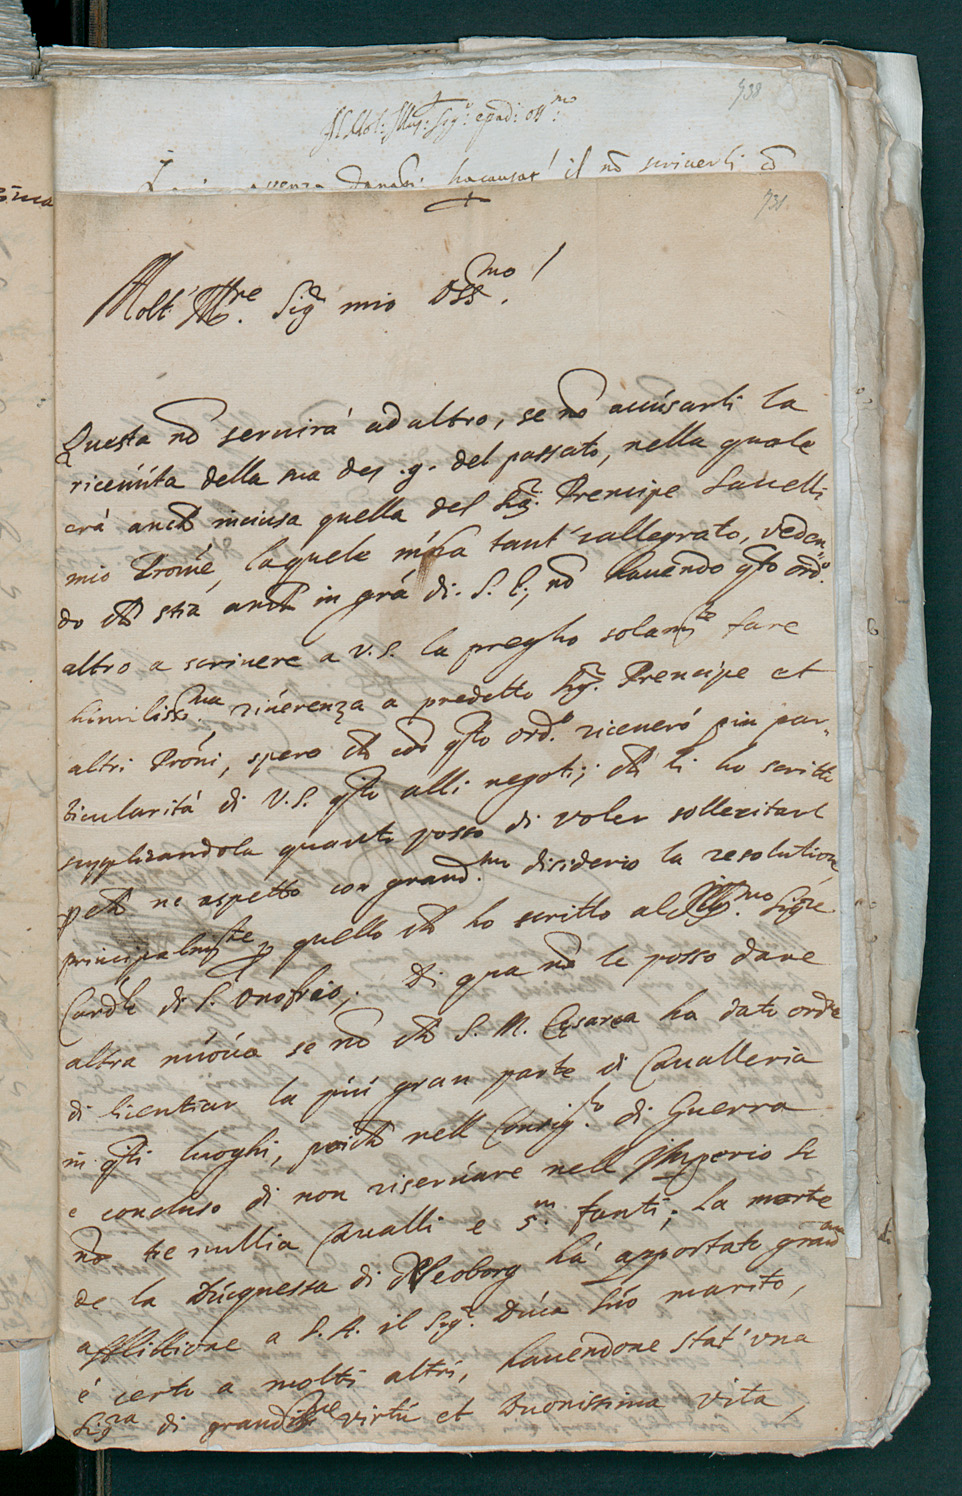 738
Il Mol: Illus: Sig.r e pad: oss.mo
assenza da hacausat' il nõ scriverli cõ
õma
738.
Molt' Ill.re Sig.r mio Oss.mo!
Questa nõ seruirá ad altro, se nõ accúsarli la
riceúúta della sua del .9. del passato, nella quale
erá anch incłusa quella del Sig.r Prencipe Sauelli
mio Prõne, laquele m'ha tant' rallegrato, veden-
do ch stia anch in grã di S. E; nõ hauendo q̃sto ord.o
altro a scriuere a V.S. la pregho solam.te fare
humilissi.ma riúerenza a predetto Sig.r Prencipe et
altri Prõni, spero ch cõ q̃sto ord.o riceueró piu par-
ticularitá di V.S. q̃sto alli negotij ch li ho scritto
supplicandola quanto posso di voler sollezitarl
p ch ne aspetto con grand.mo disiderio la resolutione
principalm.te p quello ch ho scritto al Ill.mo Sig.re
Card.le di S. Onofrio; Di qua nõ le posso dare
altra núoúa se nõ ch S. M. Cesarea ha dato ord.e
di licentiar la piú gran parte di Caualleria
in q̃sti luoghi, poich nell Consig.o di Guerra
e concluso di non riseruare nell Imperio se
nõ tre millia Caualli e 5.m fanti; La morte
de la Dúcquessa di Neoborg há apportato grand.am
afflittione a S. A. il Sig.r Dúca súo marito,
é certo a molti altri, hauendone stat' vna
Sig.ra di grandis.me virtú et buonissima vita,